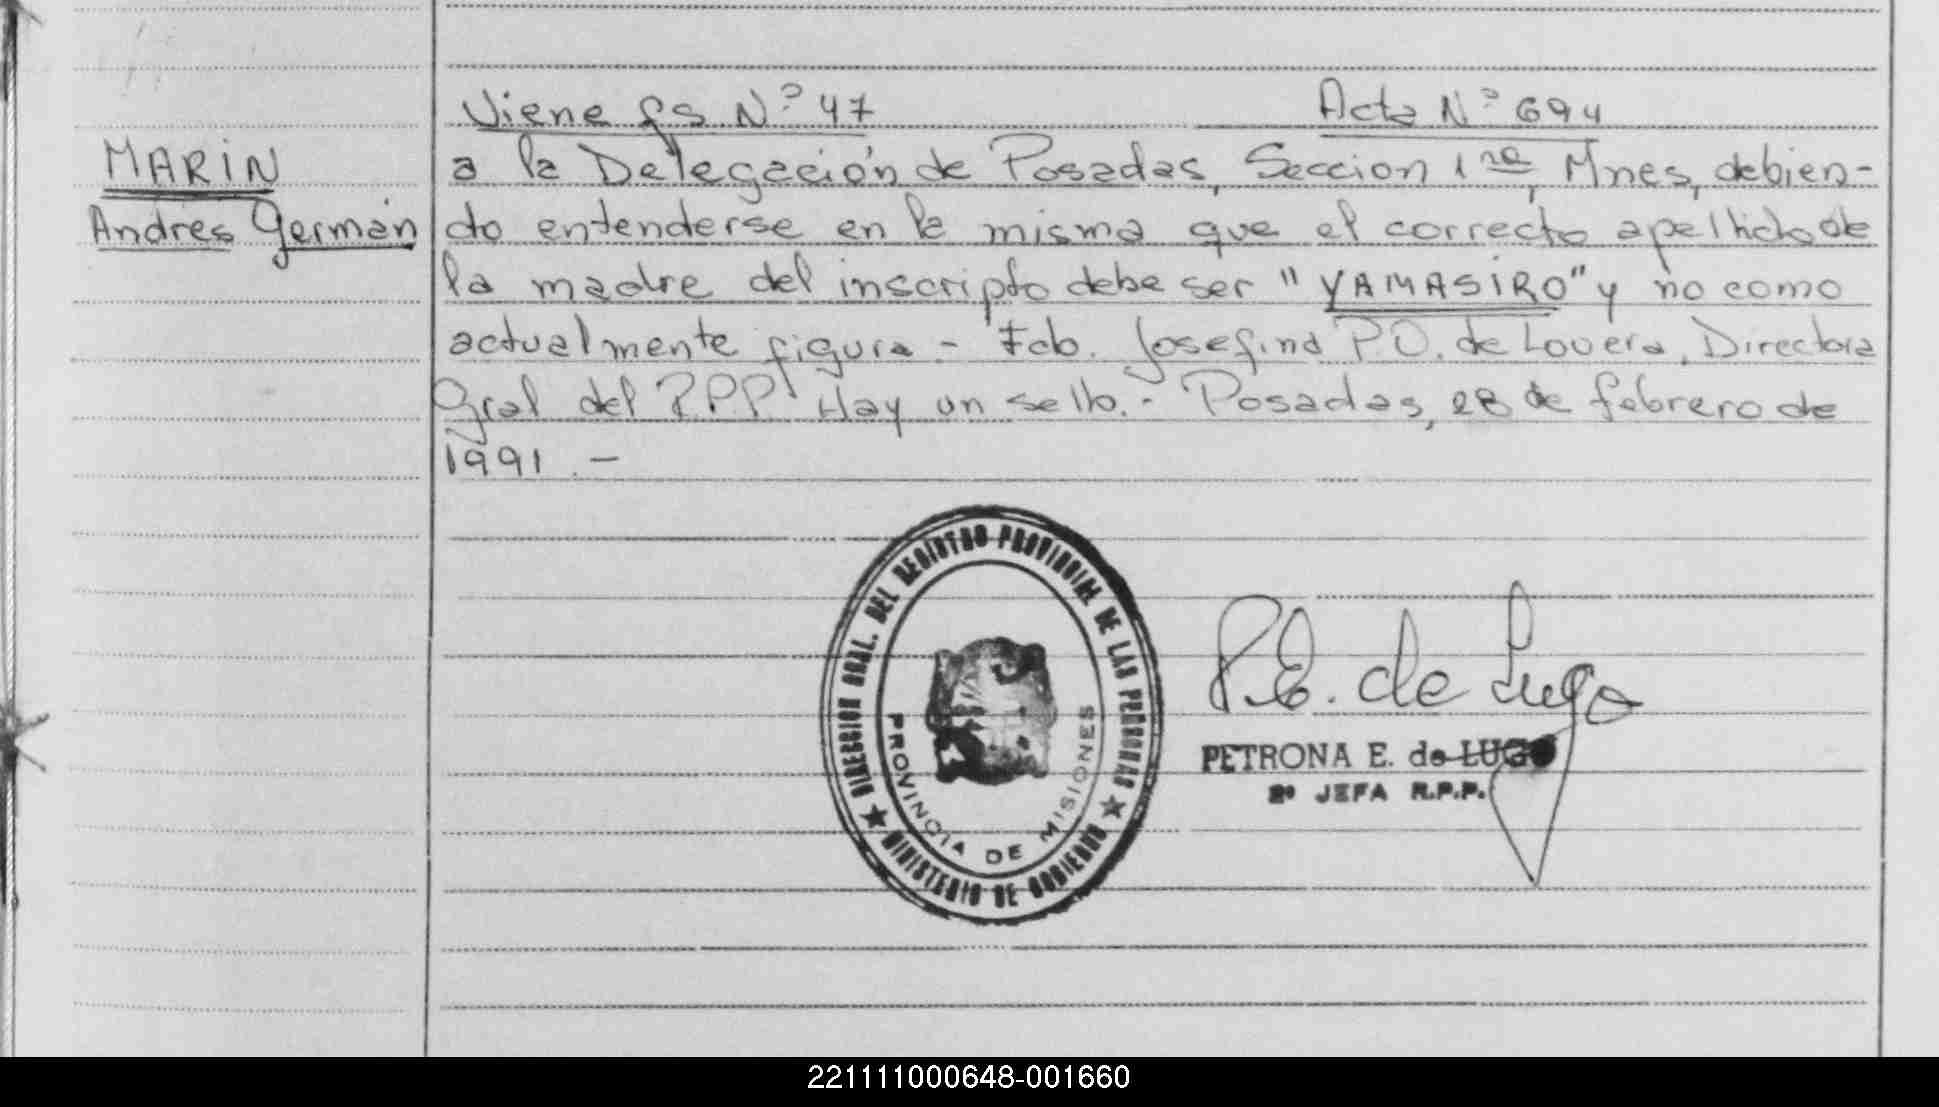 Viene fs Nº 47 Acta Nº 694
MARIN
Andrés Germán
a la Delegación de Posadas, Seccion 1ra, Mnes, debien-
do entenderse en la misma que el correcto apellido de
la madre del inscripto debe ser "YAMASIRO" y no como
actualmente figura.- Fdo. Josefina P.O. de Lovera, Directora
Gral del RPP. Hay un sello.- Posadas, 28 de febrero de
1991.-
DIRECCION GRAL. DEL REGISTRO PROVINCIAL DE LAS PERSONAS
MINISTERIO DE GOBIERNO
PROVINCIA DE MISIONES
P.E. de Lugo
PETRONA E. de LUGO
2º JEFA R.P.P.
221111000648-001660